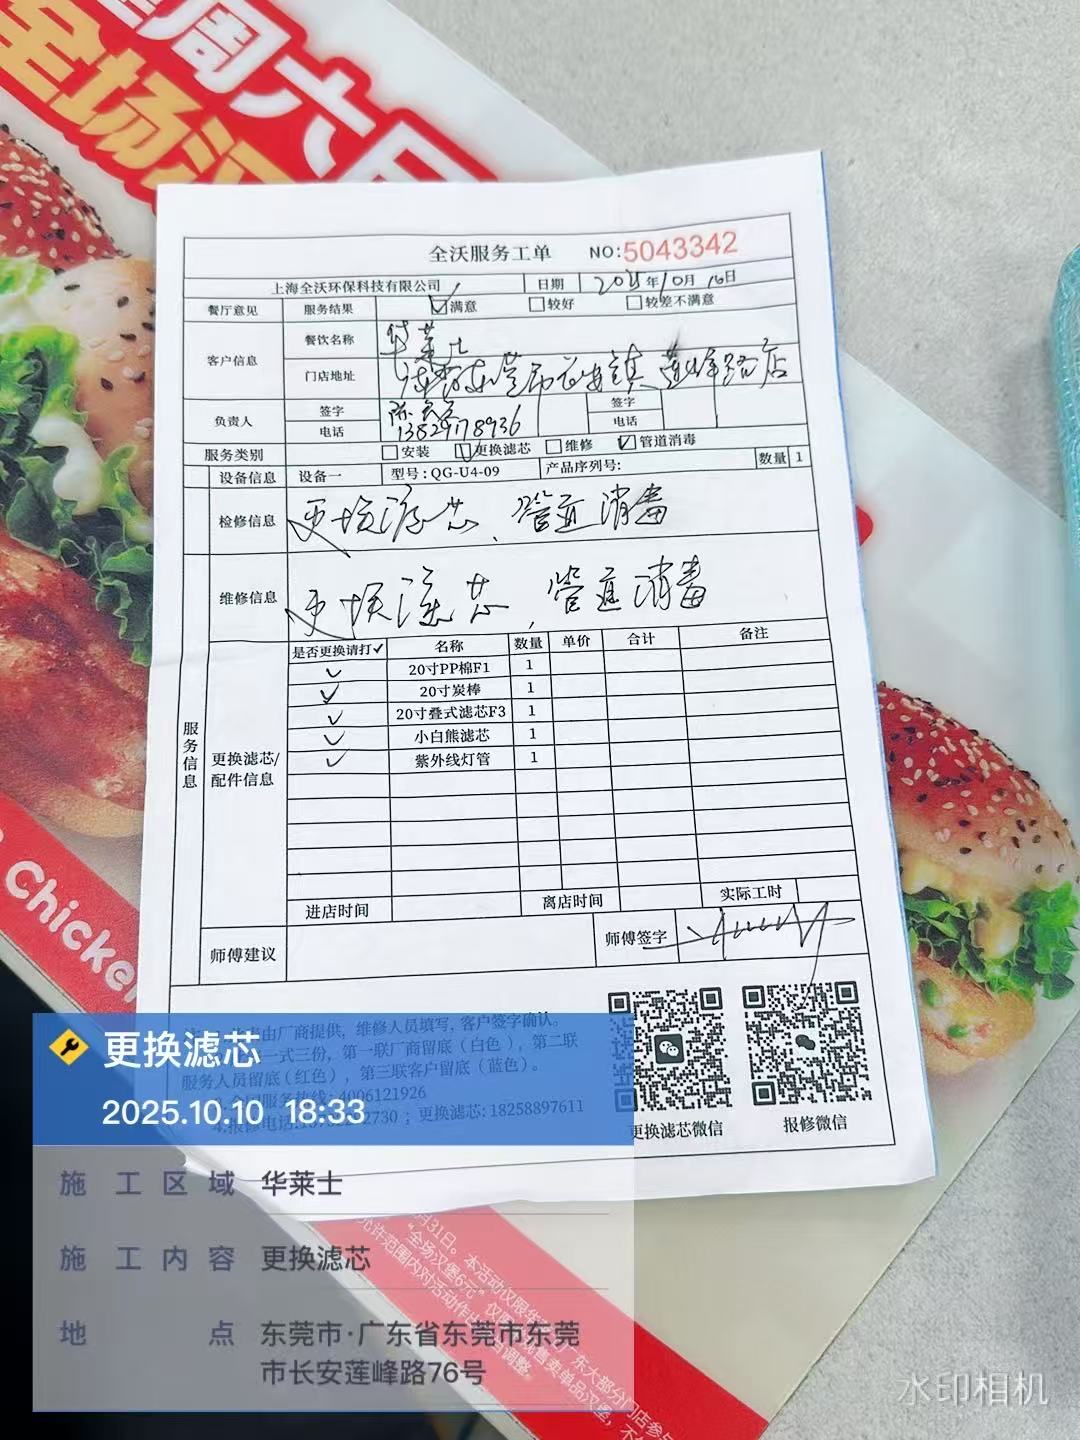 周六
全场汉
全沃服务工单 NO:5043342
上海全沃环保科技有限公司 日期 2025年10月10日
餐厅意见 服务结果 ☑满意 □较好 □较差不满意
客户信息 餐饮名称 华莱士
门店地址 广东东莞市长安镇莲峰路店
负责人 签字 签字
电话 13829178936 电话
服务类别 □安装 ☑更换滤芯 □维修 ☑管道消毒
设备信息 设备一 型号:QG-U4-09 产品序列号: 数量 1
检修信息 更换滤芯、管道消毒
维修信息 更换滤芯,管道消毒
服务信息
更换滤芯/配件信息
是否更换请打✓ 名称 数量 单价 合计 备注
✓ 20寸PP棉F1 1
✓ 20寸炭棒 1
✓ 20寸叠式滤芯F3 1
✓ 小白熊滤芯 1
✓ 紫外线灯管 1
进店时间 离店时间 实际工时
师傅建议 师傅签字
由厂商提供,维修人员填写,客户签字确认。
一式三份,第一联厂商留底(白色),第二联
服务人员留底(红色),第三联客户留底(蓝色)。
4006121926
2730;更换滤芯:18258897611
更换滤芯微信 报修微信
Chicken
更换滤芯
2025.10.10 18:33
施工区域 华莱士
施工内容 更换滤芯
地点 东莞市·广东省东莞市东莞
市长安莲峰路76号
水印相机